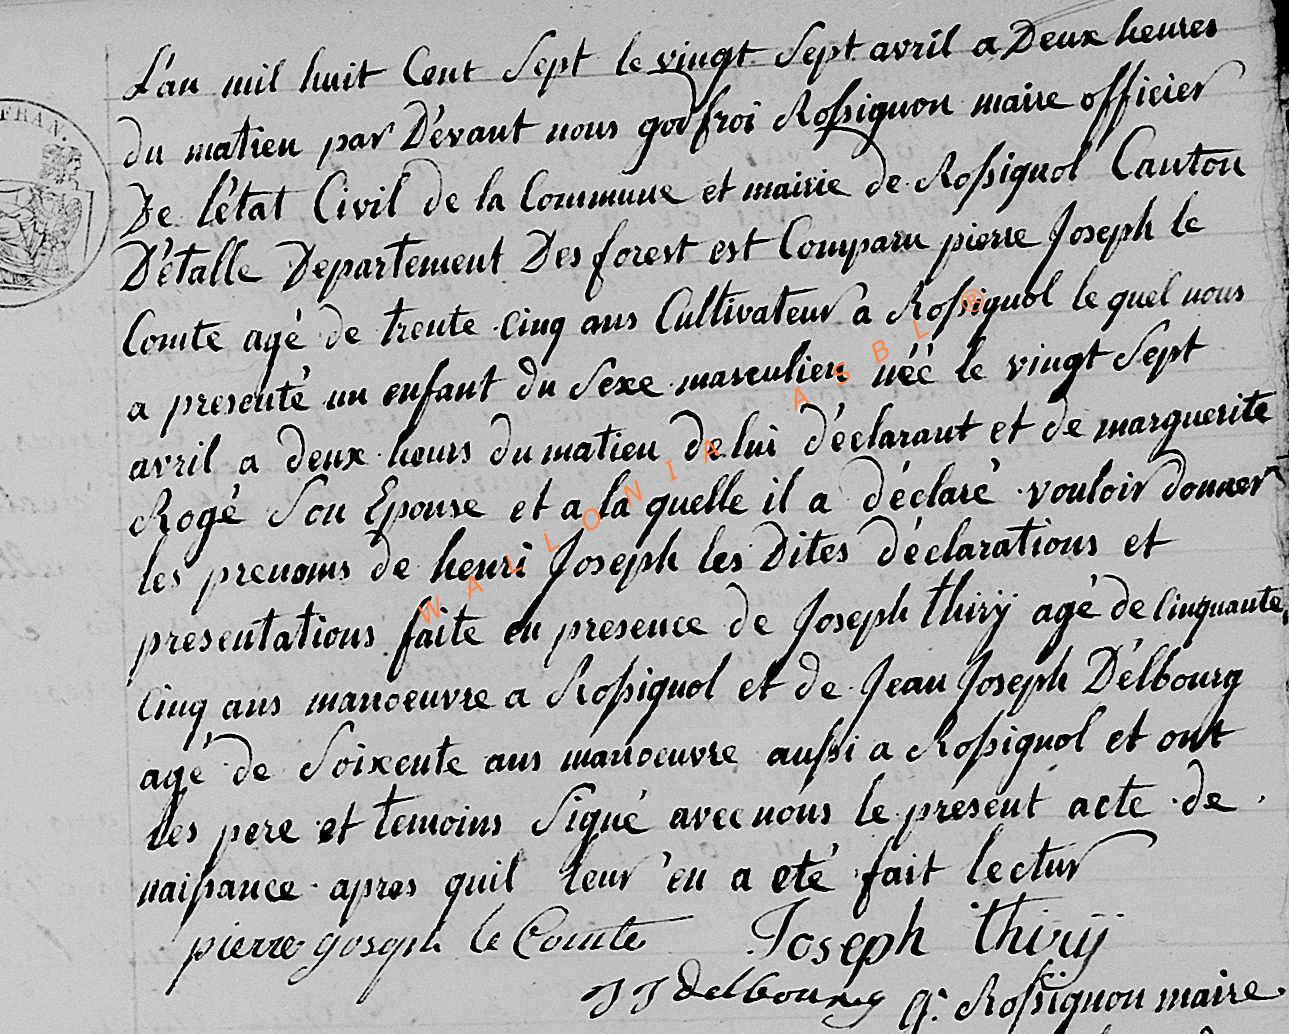 L'an mil huit Cent Sept le vingt Sept avril a Deux heures
du matieu par Dévant nous godfroi Rossignon maire officier
FRAN.
De l'état Civil de la Commune et mairie de Rossignol Canton
D'étalle Departement Des forest est Comparu pierre Joseph le
Comte agé de trente cinq ans Cultivateur a Rossignol le quel nous
a presenté un enfant du Sexe masculien néé le vingt Sept
avril a deux heurs du matieu de lui déclarant et de marguerite
Rogé Son Epouse et a la quelle il a déclaré vouloir donner
les prenoms de henri Joseph les Dites déclarations et
presentations faite en presence de Joseph thirÿ agé de Cinquante
Cinq ans manoeuvre a Rossignol et de Jean Joseph Délbourg
agé de Soixente ans manoeuvre aussi a Rossignol et ont
les pere et temoins Signé avec nous le present acte de
naissance apres quil leur én a eté fait lectur
pierre Joseph le Comte Joseph thirÿ
J J delbourg G. Rossignon maire
WALLONIA ASBL ®